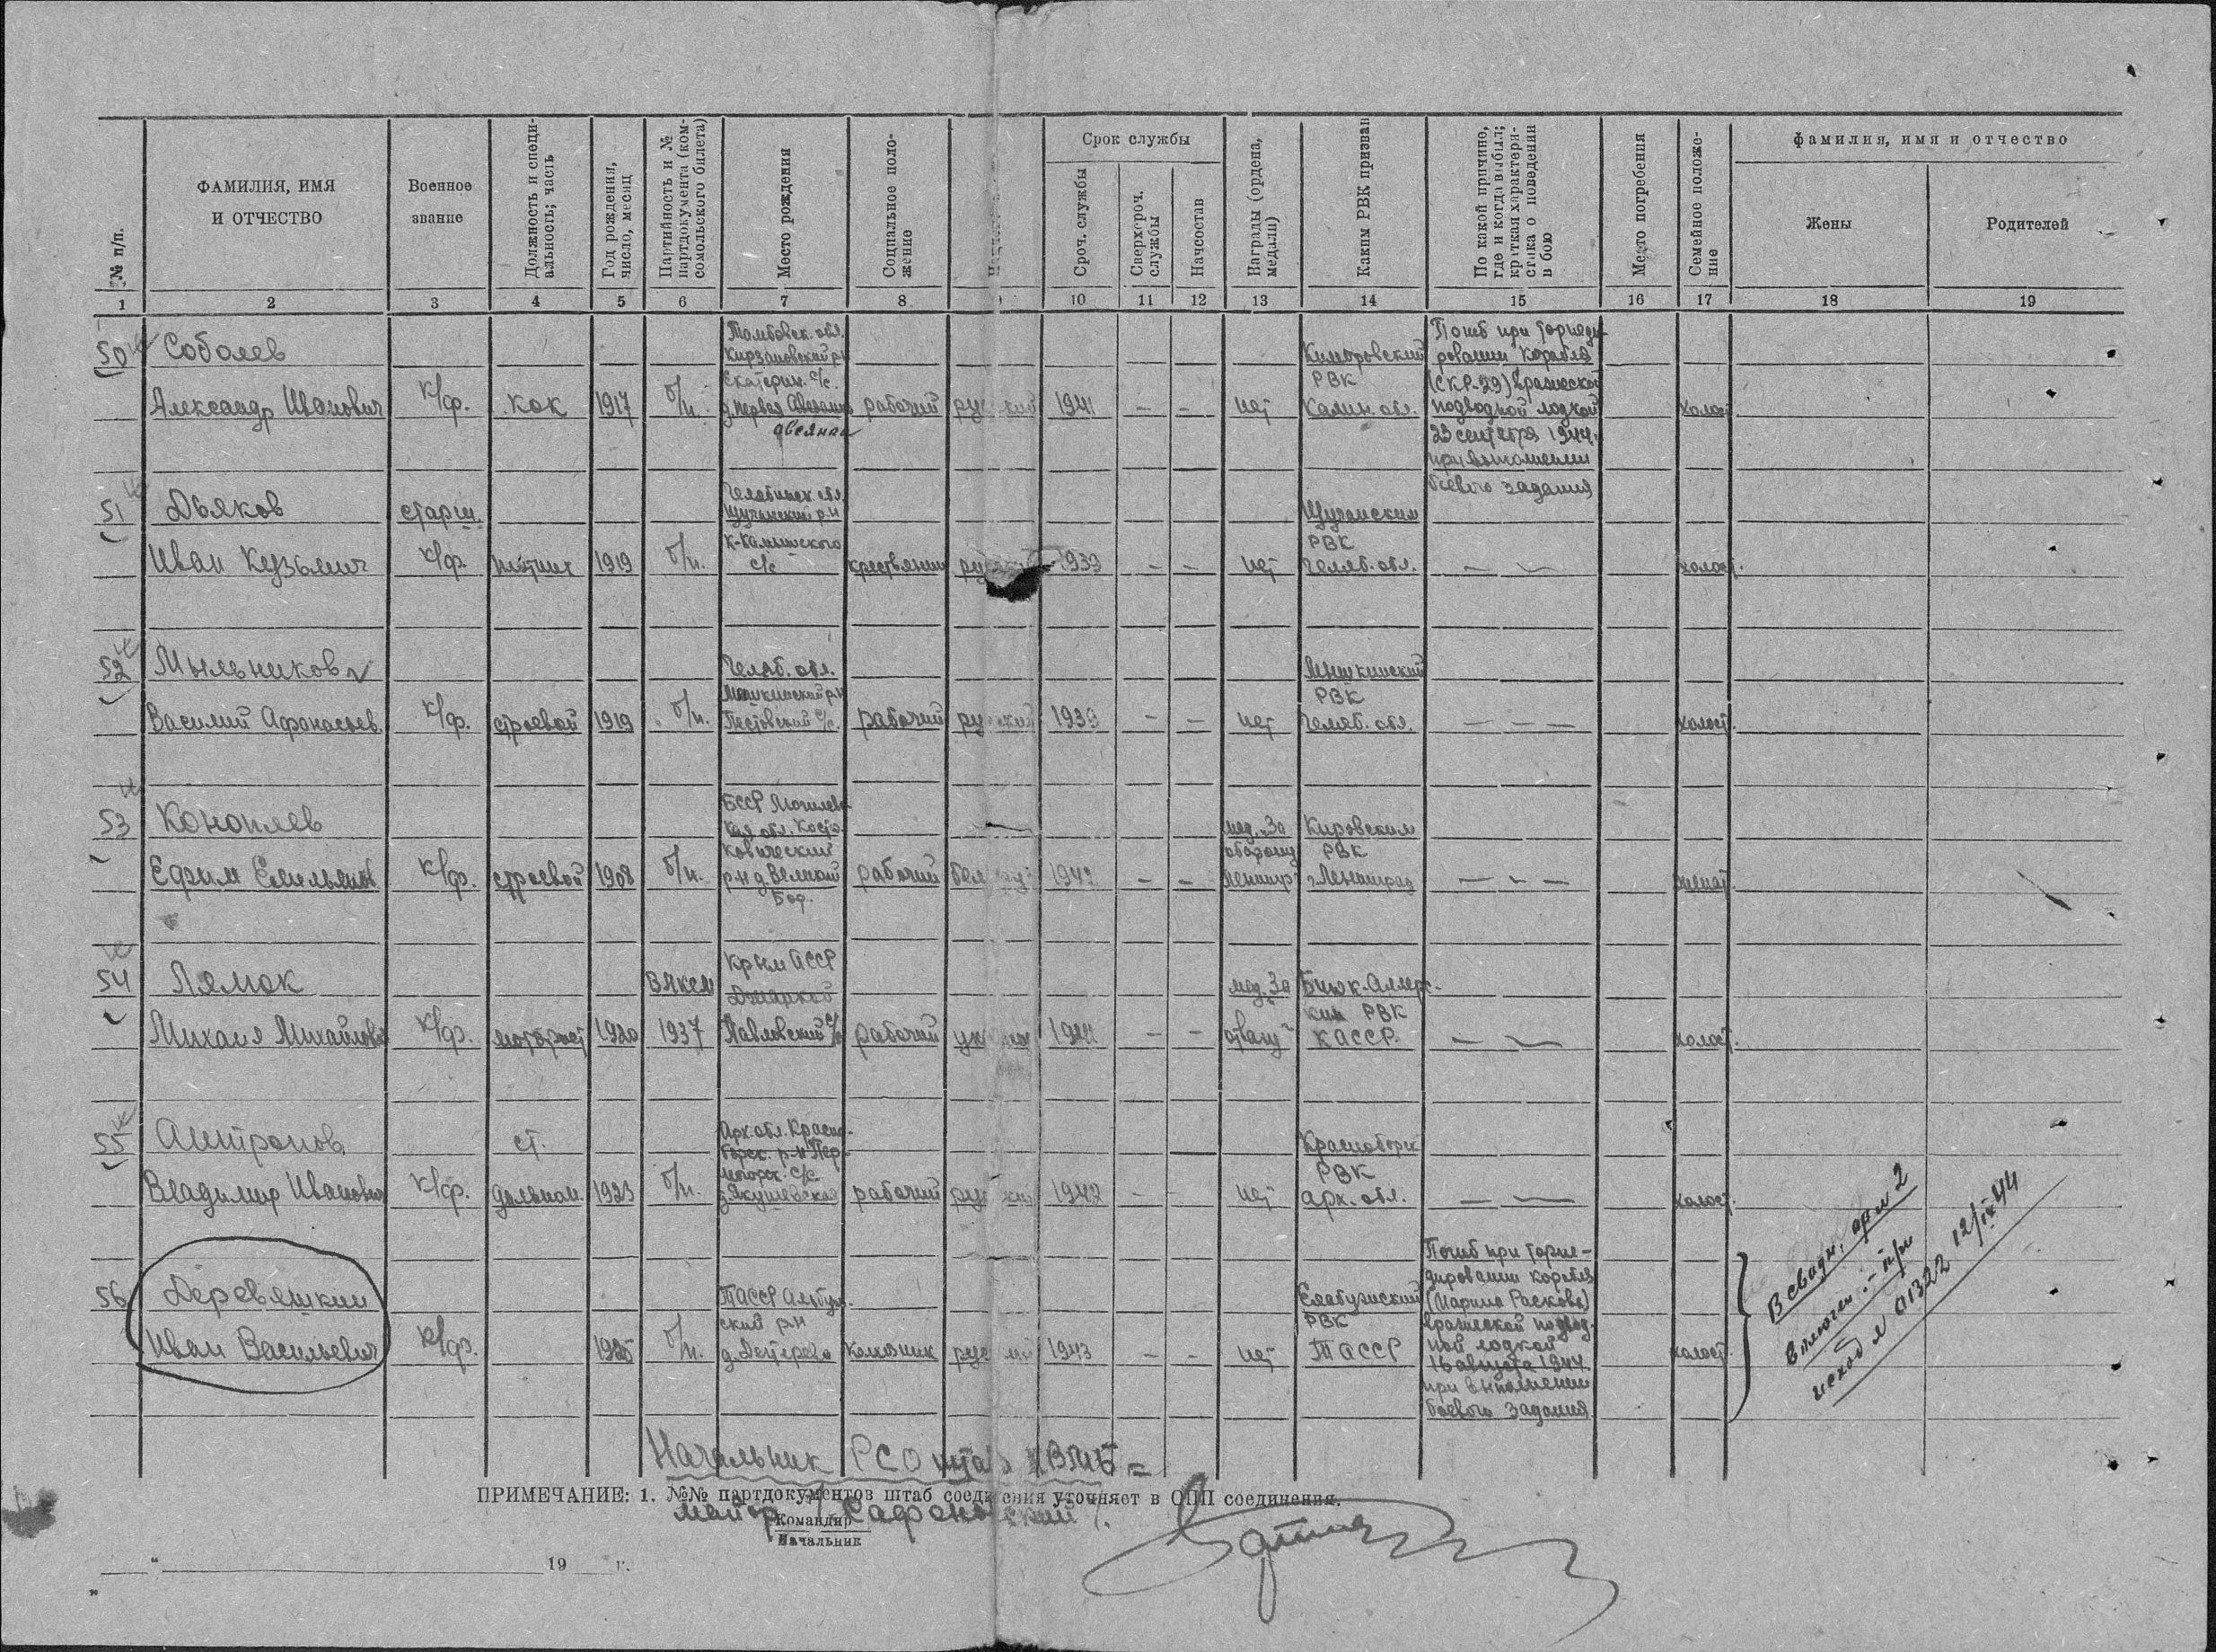 № п/п.
ФАМИЛИЯ, ИМЯ
И ОТЧЕСТВО
Военное
звание
Должность и специ-
альность; часть
Год рождения,
число, месяц
Партийность и №
партдокумента (ком-
сомольского билета)
Место рождения
Социальное поло-
жение
Срок службы
Сроч. службы
Сверхсроч.
службы
Начсостав
Награды (ордена,
медали)
Каким РВК призван
По какой причине,
где и когда выбыл;
краткая характери-
стика о поведении
в бою
Место погребения
Семейное положе-
ние
фамилия, имя и отчество
Жены
Родителей
1 2 3 4 5 6 7 8 10 11 12 13 14 15 16 17 18 19
50 Соболев
Александр Иванович
к/ф.
кок
1917
б/п.
Тамбовск. обл.
Кирзановский р-н
Екатерин. с/с.
д. первая
рабочий
рус кий
1941
— —
нет
РВК
Калин. обл.
Погиб при торпеди-
ровании корабля
(СКР-29) вражеской
подводной лодкой
23 сентября 1944.
при выполнении
боевого задания
холост.
51 Дьяков
Иван Кузьмич
старш.
к/ф.
1919
б/п.
Челябинск обл.
Щучанский р-н
с/с
крестьянин
1939
— —
нет
Щучанским
РВК
Челяб. обл.
— —
холост.
52 Мыльников
Василий Афанасьев.
к/ф.
строевой
1919
б/п.
Челяб. обл.
Мишкинский р-н
с/с.
рабочий
рус кий
1939
— —
нет
Мишкинский
РВК
Челяб. обл.
— — —
холост.
53 Коноплев
Ефим Емельянов.
к/ф.
строевой
1908
б/п.
БССР Могилев-
кая обл. Костю-
ковический
р-н д. Великий
Бор.
рабочий
бел
— —
мед. „За
оборону
Ленингр“
Кировским
РВК
г. Ленинград
— — —
женат
54 Лямок
Михаил Михайлов.
к/ф.
моторист
1920
ВЛКСМ
1937
Крым АССР
Джанкой
Павловский с/с
рабочий
— —
мед. „За
отвагу“
Биюк-Онлар-
ким РВК
КАССР.
— —
холост.
55 Антропов
Владимир Иванович
к/ф.
ст.
дальном.
1923
б/п.
Арх. обл. Красно-
борск. р-н Пер-
могорск. с/с.
д. Якушевская
рабочий
рус кий
1942
— —
нет
Красноборск
РВК
арх. обл.
— —
холост.
56 Деревяшкин
Иван Васильевич
к/ф.
1925
б/п.
ТАССР
ский р-н
рус
1943
— —
нет
Елабужский
РВК
ТАССР
Погиб при торпе-
дировании корабля
(Марина Раскова)
вражеской подвод-
ной лодкой
16 августа 1944.
при выполнении
боевого задания
холост.
Начальник РСО
ПРИМЕЧАНИЕ: 1. №№ партдокументов штаб соединения уточняет в ОПП соединения.
майор
Командир
Начальник
„ 19 г.